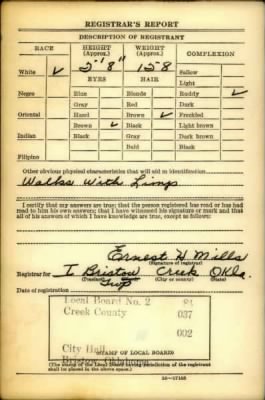 REGISTRAR'S REPORT
DESCRIPTION OF REGISTRANT
RACE HEIGHT (Approx.) WEIGHT (Approx.) COMPLEXION
5' 8" 158
White ✓ EYES HAIR Sallow
Light
Negro Blue Blonde Ruddy ✓
Gray Red Dark
Oriental Hazel Brown ✓ Freckled
Brown ✓ Black Light brown
Indian Black Gray Dark brown
Bald Black
Filipino
Other obvious physical characteristics that will aid in identification
Walks With Limp
I certify that my answers are true; that the person registered has read or has had
read to him his own answers; that I have witnessed his signature or mark and that
all of his answers of which I have knowledge are true, except as follows:
Ernest H Mills
(Signature of registrar)
Registrar for Bristow Creek Okla.
(City or county) (State)
Date of registration
Local Board No. 2
Creek County 037
002
City Hall
Bristow, Oklahoma
STAMP OF LOCAL BOARD
(The stamp of the Local Board having jurisdiction of the registrant
shall be placed in the above space.)